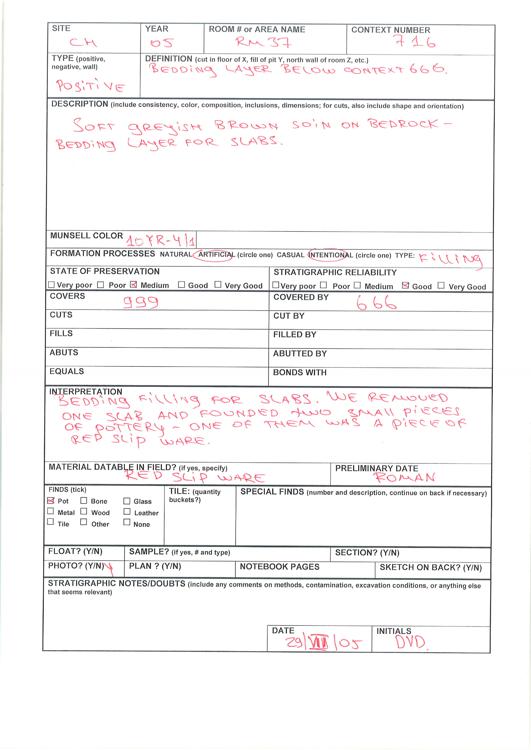 SITE YEAR ROOM # or AREA NAME CONTEXT NUMBER
CH 05 RM 37 716
TYPE (positive, negative, wall) DEFINITION (cut in floor of X, fill of pit Y, north wall of room Z, etc.)
POSITIVE BEDDING LAYER BELOW CONTEXT 666.
DESCRIPTION (include consistency, color, composition, inclusions, dimensions; for cuts, also include shape and orientation)
SOFT GREYISH BROWN SOIN ON BEDROCK –
BEDDING LAYER FOR SLABS.
MUNSELL COLOR 10YR-4/1
FORMATION PROCESSES NATURAL ARTIFICIAL (circle one) CASUAL INTENTIONAL (circle one) TYPE: FILLING
STATE OF PRESERVATION STRATIGRAPHIC RELIABILITY
Very poor Poor Medium Good Very Good Very poor Poor Medium Good Very Good
COVERS 999 COVERED BY 666
CUTS CUT BY
FILLS FILLED BY
ABUTS ABUTTED BY
EQUALS BONDS WITH
INTERPRETATION
BEDDING FILLING FOR SLABS. WE REMOVED
ONE SLAB AND FOUNDED TWO SMALL PIECES
OF POTTERY – ONE OF THEM WAS A PIECE OF
RED SLIP WARE.
MATERIAL DATABLE IN FIELD? (if yes, specify) PRELIMINARY DATE
RED SLIP WARE ROMAN
FINDS (tick) TILE: (quantity buckets?) SPECIAL FINDS (number and description, continue on back if necessary)
Pot Bone Glass
Metal Wood Leather
Tile Other None
FLOAT? (Y/N) SAMPLE? (if yes, # and type) SECTION? (Y/N)
PHOTO? (Y/N) Y PLAN ? (Y/N) NOTEBOOK PAGES SKETCH ON BACK? (Y/N)
STRATIGRAPHIC NOTES/DOUBTS (include any comments on methods, contamination, excavation conditions, or anything else
that seems relevant)
DATE INITIALS
29/VII/05 DVD.